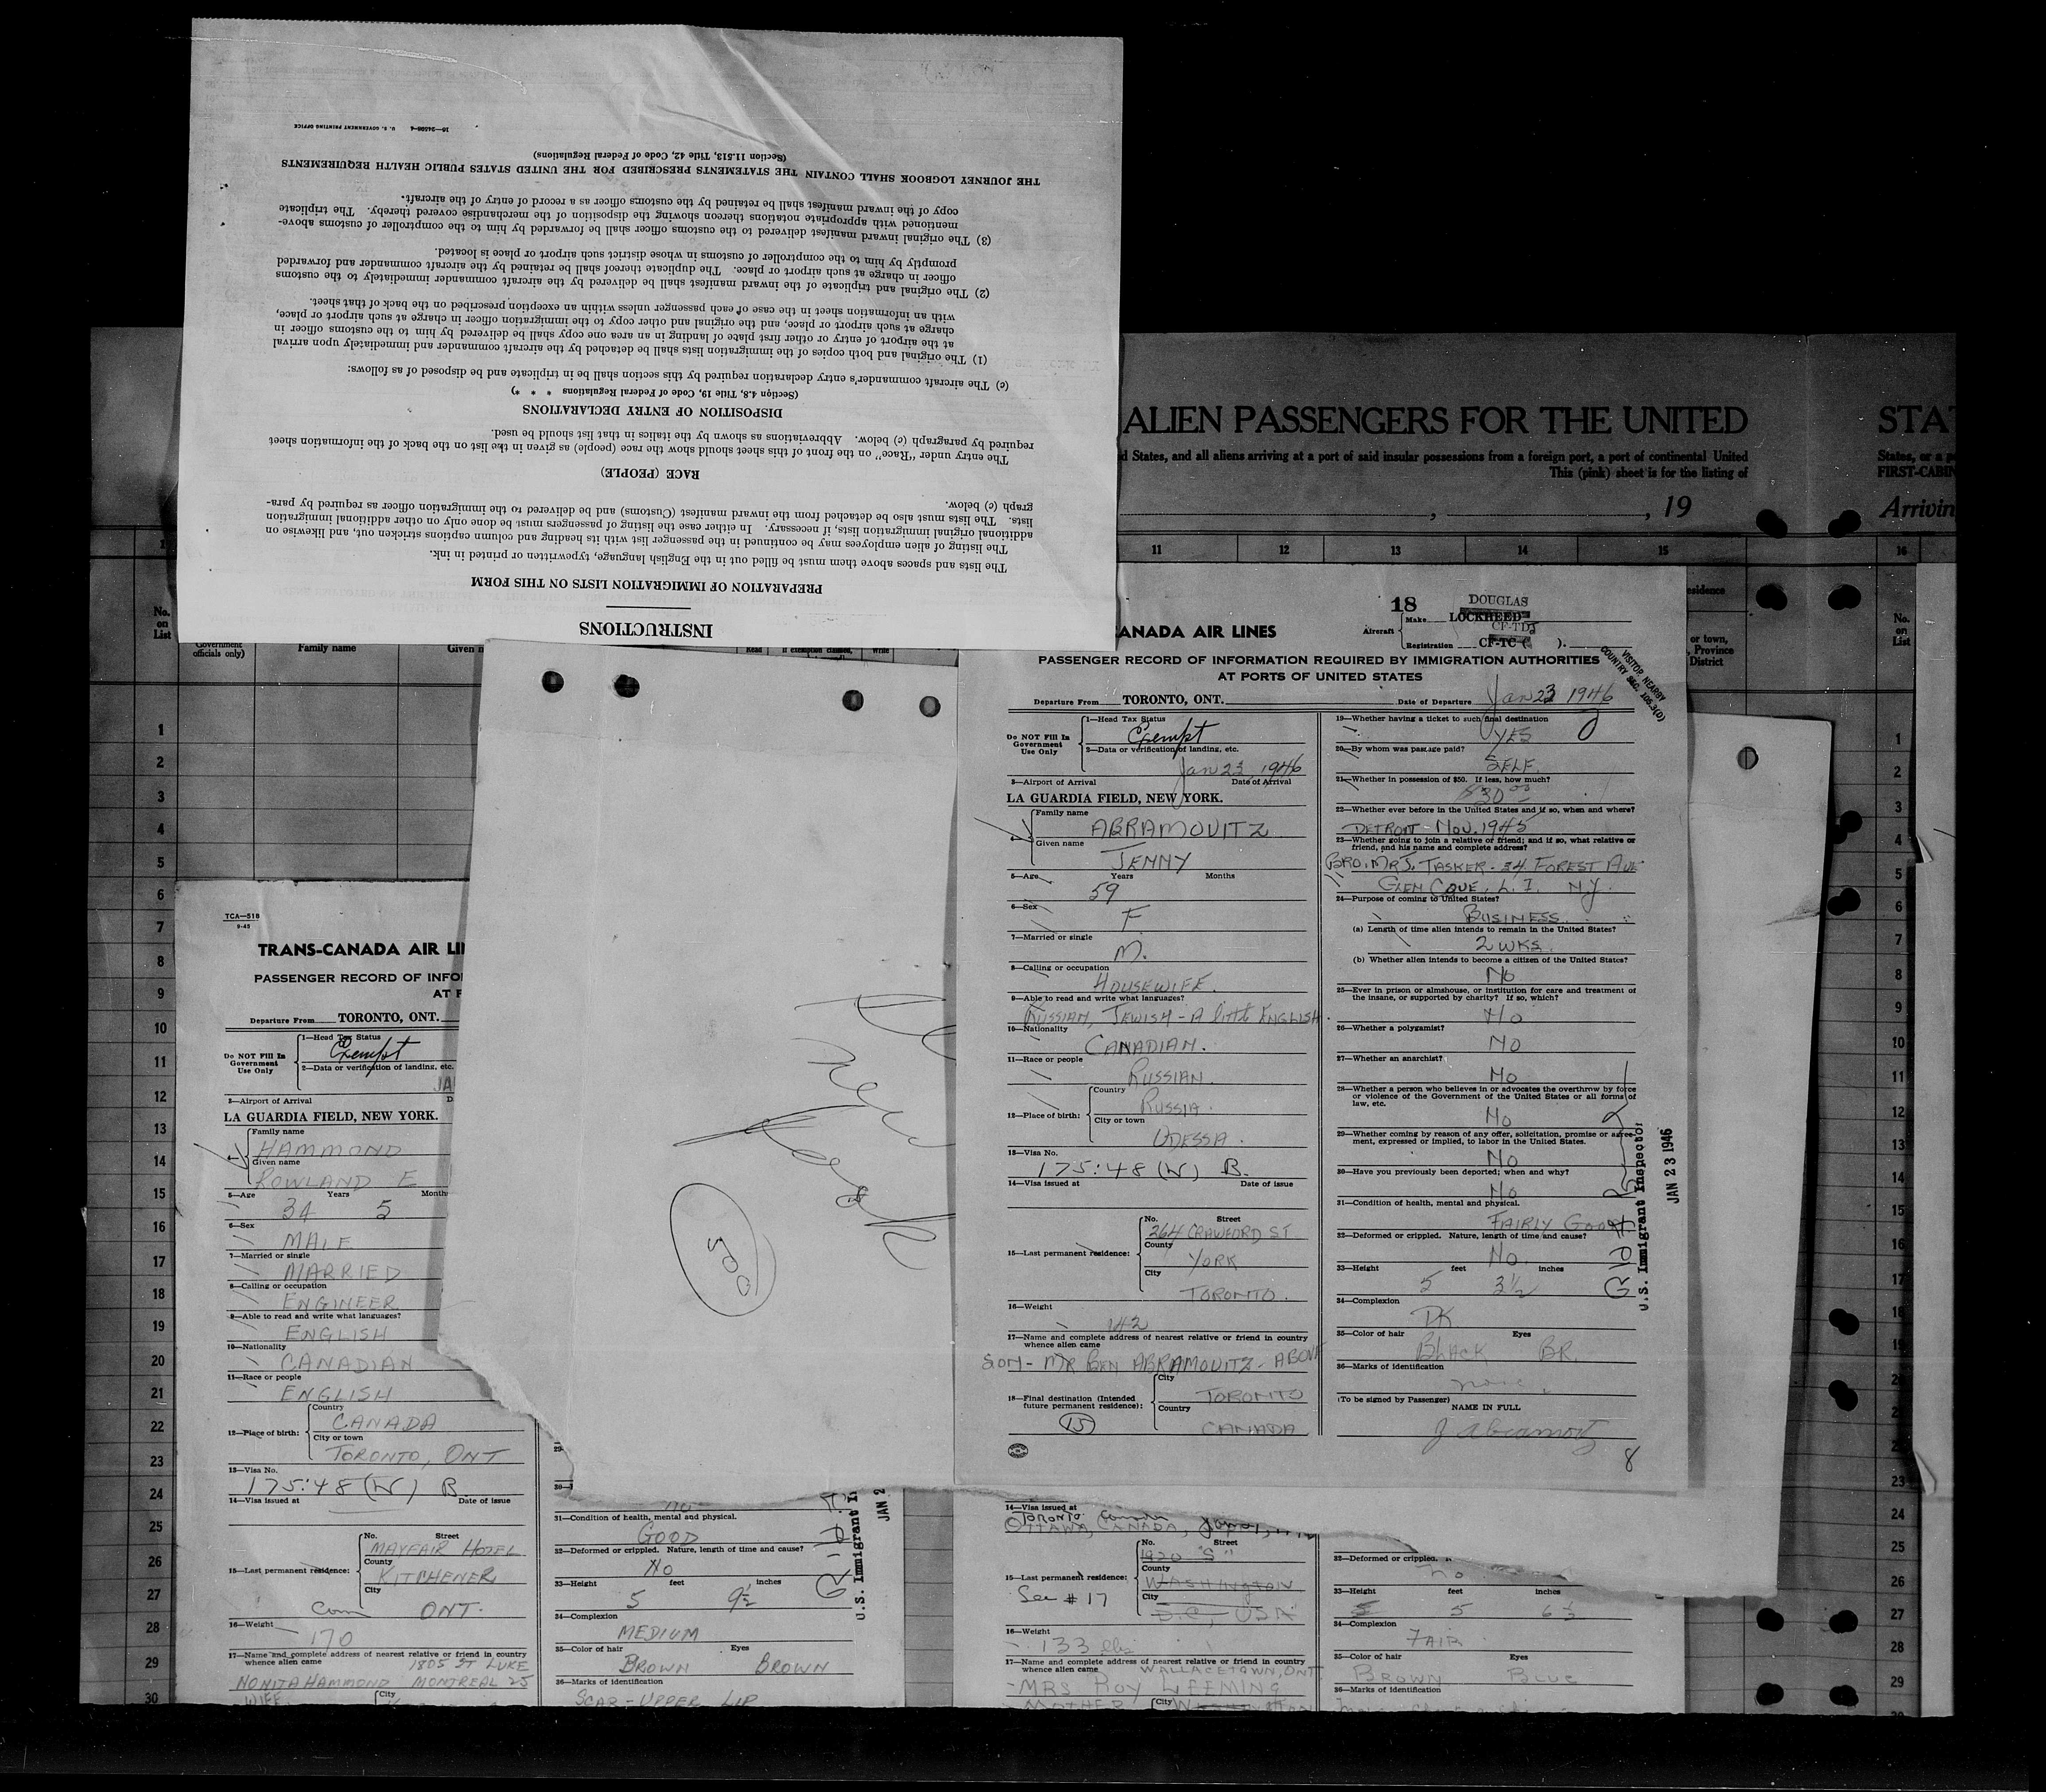 INSTRUCTIONS
PREPARATION OF IMMIGRATION LISTS ON THIS FORM
The lists and spaces above them must be filled out in the English language, typewritten or printed in ink.
The listing of alien employees may be continued in the passenger list with its heading and column captions stricken out, and likewise on
additional original immigration lists, if necessary. In either case the listing of passengers must be done only on other additional immigration
lists. The lists must also be detached from the inward manifest (Customs) and be delivered to the immigration officer as required by para-
graph (c) below.
RACE (PEOPLE)
The entry under "Race" on the front of this sheet should show the race (people) as given in the list on the back of the information sheet
required by paragraph (c) below. Abbreviations as shown by the italics in that list should be used.
DISPOSITION OF ENTRY DECLARATIONS
(Section 4.8, Title 19, Code of Federal Regulations * * *)
(c) The aircraft commander's entry declaration required by this section shall be in triplicate and be disposed of as follows:
(1) The original and both copies of the immigration lists shall be detached by the aircraft commander and immediately upon arrival
at the airport of entry or other first place of landing in an area one copy shall be delivered by him to the customs officer in
charge at such airport or place, and the original and other copy to the immigration officer in charge at such airport or place,
with an information sheet in the case of each passenger unless within an exception prescribed on the back of that sheet.
(2) The original and triplicate of the inward manifest shall be delivered by the aircraft commander immediately to the customs
officer in charge at such airport or place. The duplicate thereof shall be retained by the aircraft commander and forwarded
promptly by him to the comptroller of customs in whose district such airport or place is located.
(3) The original inward manifest delivered to the customs officer shall be forwarded by him to the comptroller of customs above-
mentioned with appropriate notations thereon showing the disposition of the merchandise covered thereby. The triplicate
copy of the inward manifest shall be retained by the customs officer as a record of entry of the aircraft.
THE JOURNEY LOGBOOK SHALL CONTAIN THE STATEMENTS PRESCRIBED FOR THE UNITED STATES PUBLIC HEALTH REQUIREMENTS
(Section 11.513, Title 42, Code of Federal Regulations)
16—24598-4 U. S. GOVERNMENT PRINTING OFFICE
ALIEN PASSENGERS FOR THE UNITED
STAT
d States, and all aliens arriving at a port of said insular possessions from a foreign port, a port of continental United
This (pink) sheet is for the listing of
States, or a
FIRST-CABIN
, , 19
Arrivin
11 12 13 14 15 16
No. on List
Government officials only)
Family name
Given n
Read
Write
esidence
or town, Province District
No. on List
ANADA AIR LINES
18
DOUGLAS
Aircraft
Make LOCKHEED
CF-TDJ
Registration CF-TC-( ).
PASSENGER RECORD OF INFORMATION REQUIRED BY IMMIGRATION AUTHORITIES
AT PORTS OF UNITED STATES
VISITOR NEARBY
COUNTRY SEC. 105.3(D)
Departure From TORONTO, ONT.
Date of Departure Jan 23 1946
Do NOT Fill In Government Use Only
1—Head Tax Status
Exempt
2—Data or verification of landing, etc.
Jan 23 1946
3—Airport of Arrival Date of Arrival
LA GUARDIA FIELD, NEW YORK.
4—
Family name
ABRAMOVITZ
Given name
JENNY
5—Age Years Months
59
6—Sex
F
7—Married or single
M.
8—Calling or occupation
HOUSEWIFE.
9—Able to read and write what languages?
RUSSIAN, JEWISH - A little ENGLISH.
10—Nationality
CANADIAN.
11—Race or people
RUSSIAN.
12—Place of birth:
Country
RUSSIA.
City or town
ODESSA.
13—Visa No.
175:48 (W) B.
14—Visa issued at Date of issue
15—Last permanent residence:
No. Street
264 CRAWFORD ST
County
YORK
City
TORONTO.
16—Weight
142
17—Name and complete address of nearest relative or friend in country
whence alien came
SON - MR BEN ABRAMOVITZ - ABOVE
18—Final destination (Intended
future permanent residence):
City
TORONTO
Country
CANADA
15
19—Whether having a ticket to such final destination
YES
20—By whom was passage paid?
SELF.
21—Whether in possession of $50. If less, how much?
$30.00
22—Whether ever before in the United States and if so, when and where?
DETROIT - NOV. 1945
23—Whether going to join a relative or friend; and if so, what relative or
friend, and his name and complete address?
BRO. MR J. TASKER - 34 FOREST AVE
GLEN COVE, L. I. N.Y.
24—Purpose of coming to United States?
BUSINESS.
(a) Length of time alien intends to remain in the United States?
2 WKS.
(b) Whether alien intends to become a citizen of the United States?
NO
25—Ever in prison or almshouse, or institution for care and treatment of
the insane, or supported by charity? If so, which?
NO
26—Whether a polygamist?
NO
27—Whether an anarchist?
NO
28—Whether a person who believes in or advocates the overthrow by force
or violence of the Government of the United States or all forms of
law, etc.
NO
29—Whether coming by reason of any offer, solicitation, promise or agree-
ment, expressed or implied, to labor in the United States.
NO
30—Have you previously been deported; when and why?
NO
31—Condition of health, mental and physical.
FAIRLY GOOD
32—Deformed or crippled. Nature, length of time and cause?
NO.
33—Height feet inches
5 3½
34—Complexion
DK
35—Color of hair Eyes
BLACK BR.
36—Marks of identification
none.
(To be signed by Passenger)
NAME IN FULL
8
U.S. Immigrant Inspector
JAN 23 1946
TCA—518
9-43
TRANS-CANADA AIR LI
PASSENGER RECORD OF INFO
AT P
Departure From TORONTO, ONT.
Do NOT Fill In Government Use Only
1—Head Tax Status
Exempt
2—Data or verification of landing, etc.
JA
3—Airport of Arrival D
LA GUARDIA FIELD, NEW YORK.
4—
Family name
HAMMOND
Given name
ROWLAND E
5—Age Years Month
34 5
6—Sex
MALE
7—Married or single
MARRIED
8—Calling or occupation
ENGINEER
9—Able to read and write what languages?
ENGLISH
10—Nationality
CANADIAN
11—Race or people
ENGLISH
12—Place of birth:
Country
CANADA
City or town
TORONTO, ONT
13—Visa No.
175:48 (W) B.
14—Visa issued at Date of issue
15—Last permanent residence:
No. Street
MAYFAIR HOTEL
County
KITCHENER
City
ONT.
16—Weight
170
17—Name and complete address of nearest relative or friend in country
whence alien came 1805 ST LUKE
NONITA HAMMOND MONTREAL 25
WIFE City
31—Condition of health, mental and physical.
GOOD
32—Deformed or crippled. Nature, length of time and cause?
NO
33—Height feet inches
5 9½
34—Complexion
MEDIUM
35—Color of hair Eyes
BROWN BROWN
36—Marks of identification
SCAR - UPPER LIP
U.S. Immigrant In
JAN 2
14—Visa issued at
Toronto Canada
OTTAWA, CANADA,
15—Last permanent residence:
See # 17
No. Street
1920 "S"
County
WASHINGTON
City
D.C., USA
16—Weight
133 lbs
17—Name and complete address of nearest relative or friend in country
whence alien came WALLACETOWN, ONT.
MRS ROY LEEMING
MOTHER City WASHINGTON
32—Deformed or crippled.
no
33—Height feet inches
5 5 6½
34—Complexion
FAIR
35—Color of hair Eyes
BROWN BLUE
36—Marks of identification